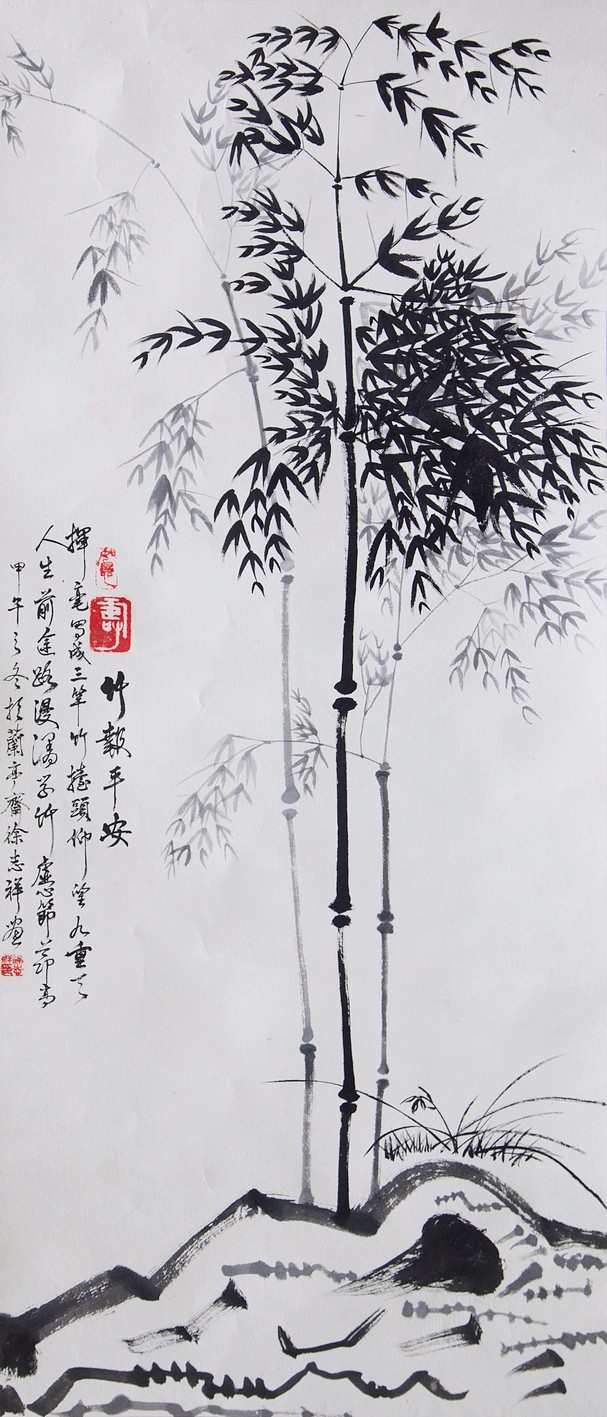 竹報平安
揮毫写成三竿竹擡頭仰望九重天
人生前途路漫漫学竹虚心節節高
甲午之冬於蘭亭齋徐志祥画
壽